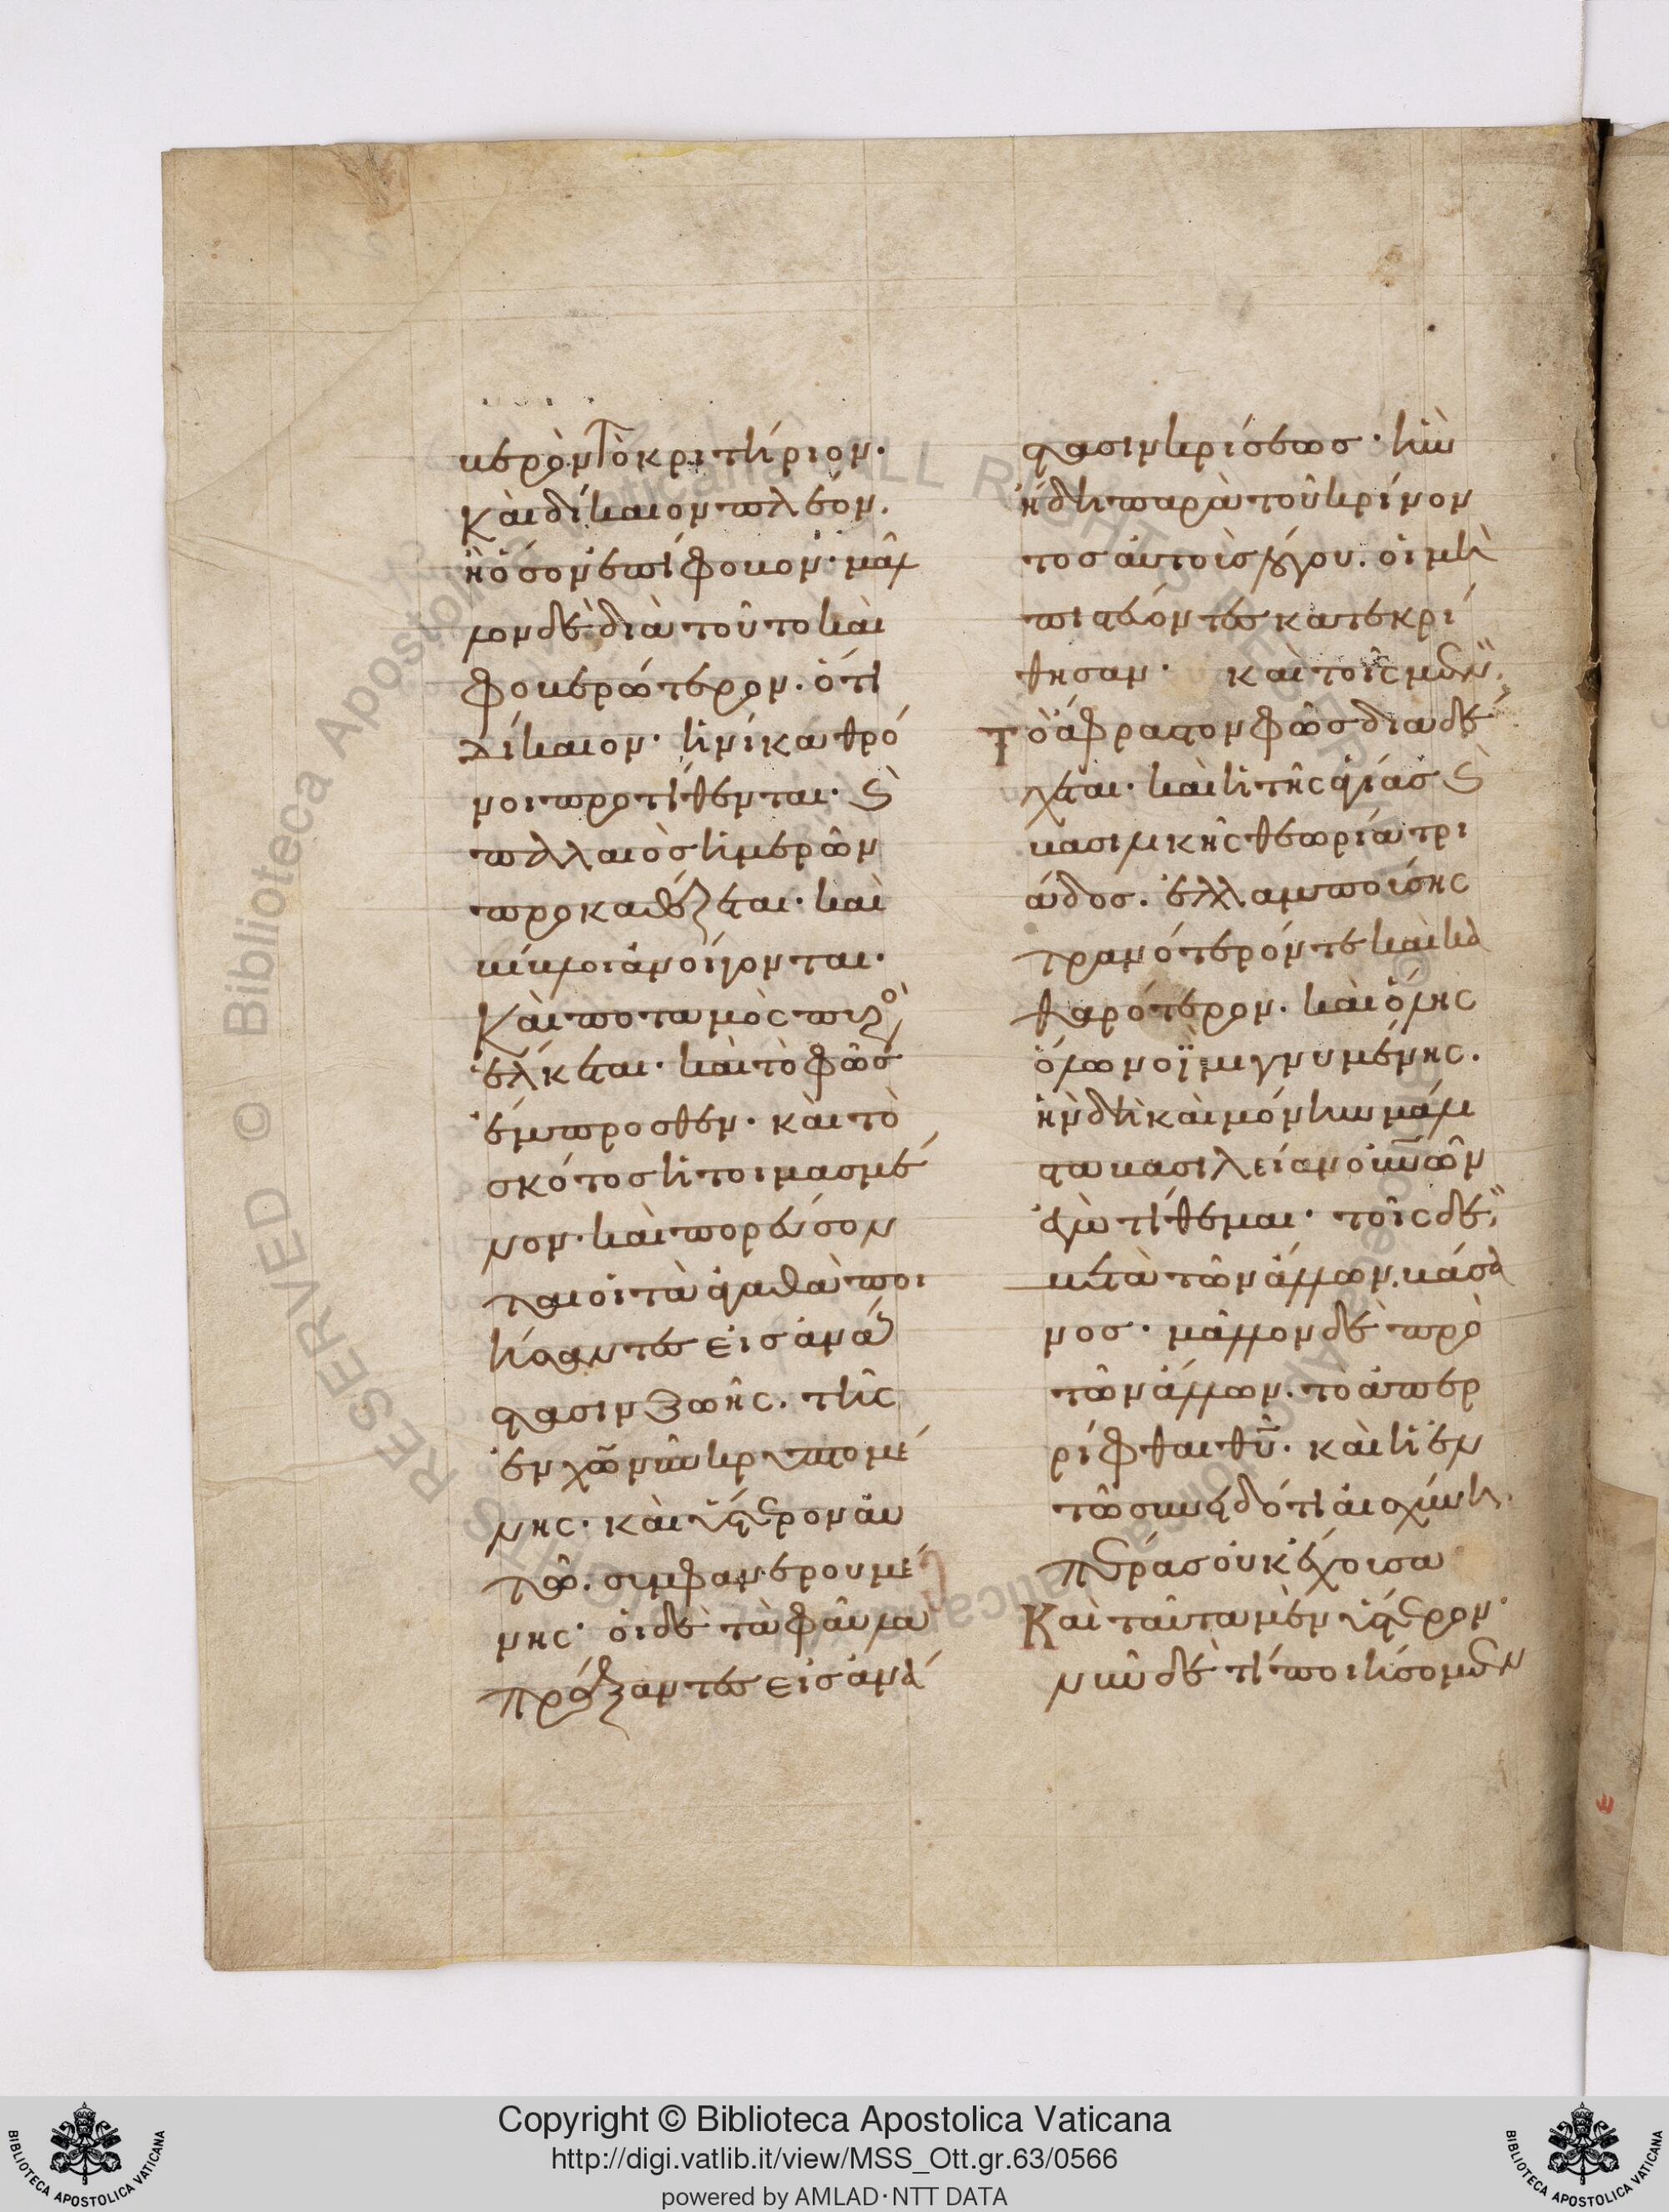 βερὸν τὸ κριτήριον.
καὶ δίκαιον πλέον.
ἢ ὅσον ἐπίφοβον· μᾶλ
λον δὲ διὰ τοῦτο καὶ
φοβερώτερον. ὅτι
δίκαιον· ἡνίκα θρό
νοι προτίθενται· καὶ
παλαιὸς ἡμερῶν
προκαθέζεται· καὶ
βίβλοι ἀνοίγονται·
Καὶ ποταμὸς πυρὸς
ἕλκεται· καὶ τὸ φῶς
ἔμπροσθεν· καὶ τὸ
σκότος ἡτοιμασμέ
νον· καὶ πορεύσον
ται οἱ τὰ ἀγαθὰ ποι
ήσαντες εἰς ἀνά
στασιν ζωῆς. τῆς
ἐν χῶ νῦν κρυπτομέ
νης· καὶ ὕστερον αὐ
τῶ. συμφανερουμέ
νης· οἱ δὲ τὰ φαῦλα
πράξαντες εἰς ἀνά
στασιν κρίσεως· ἣν
ἤδη παρὰ τοῦ κρίνον
τος αὐτοὺς λόγου. οἱ μὴ
πιστεύοντες κατεκρί
θησαν· καὶ τοῖς μὲν
τὸ ἄφραστον φῶς διαδέ
χεται· καὶ ἡ τῆς ἁγίας καὶ
βασιλικῆς θεωρία τρι
άδος. ἐλλαμπούσης
τρανότερόν τε καὶ κα
θαρότερον. καὶ ὅλης
ὅλω νοῒ μιγνυμένης.
ἣν δὴ καὶ μόνην μάλι
στα βασιλείαν οὐνῶν
ἐγὼ τίθεμαι· τοῖς δὲ
μετὰ τῶν ἄλλων. βάσα
νος· μᾶλλον δὲ πρὸ
τῶν ἄλλων. τὸ ἀπερ
ρίφθαι θυ̅· καὶ ἡ ἐν
τῶ συνειδότι αἰσχύνη.
πέρας οὐκ ἔχουσα
Καὶ ταῦτα μὲν ὕστερον·
νῦν δὲ τί ποιήσομεν
Copyright © Biblioteca Apostolica Vaticana
http://digi.vatlib.it/view/MSS_Ott.gr.63/0566
powered by AMLAD·NTT DATA
BIBLIOTECA APOSTOLICA VATICANA
BIBLIOTECA APOSTOLICA VATICANA